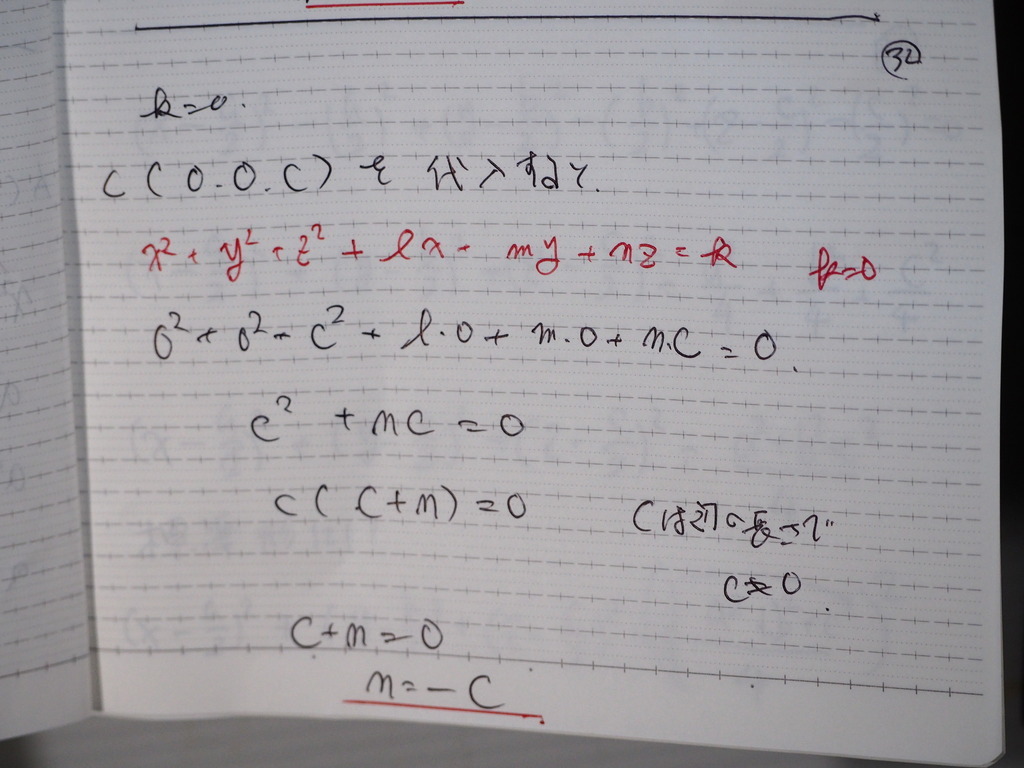 32
k=0.
C(0.0.C)を代入すると.
x²+y²+z²+lx+my+nz=k k=0
0²+0²+C²+l·0+m·0+n·C=0.
c²+nc=0
c(C+n)=0
Cは辺の長さで
c≠0.
C+n=0
n=-C